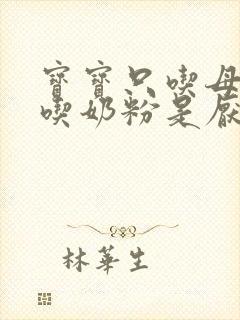 寶寶只喫母
喫奶粉是厭
林華生